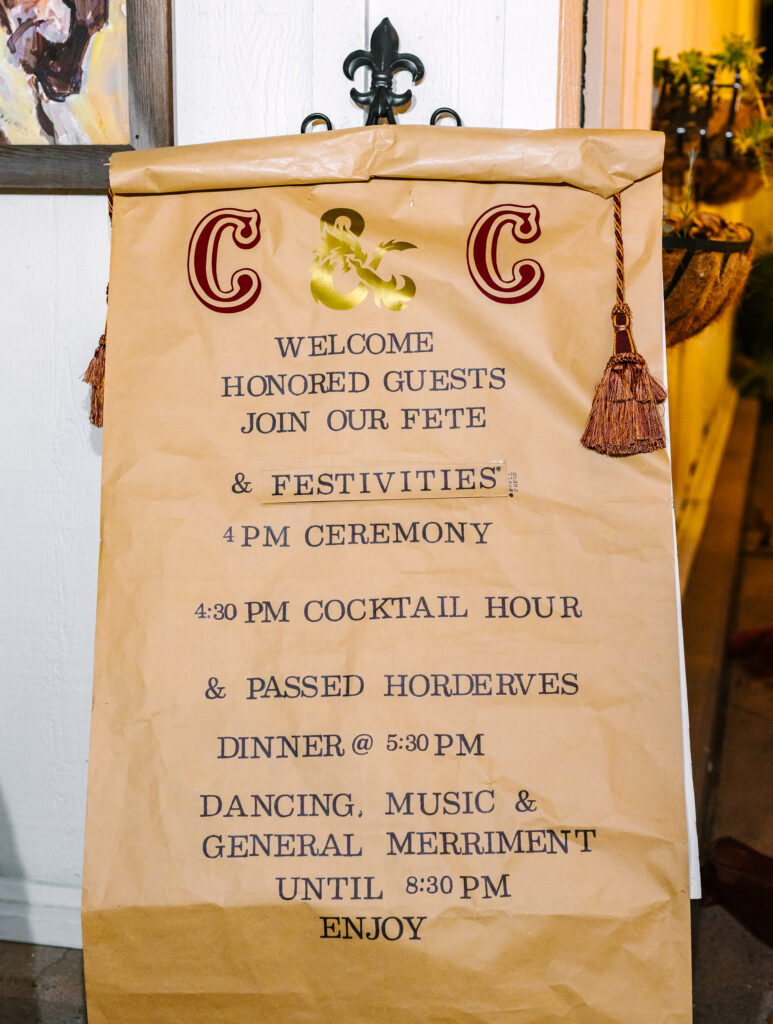 C & C
WELCOME
HONORED GUESTS
JOIN OUR FETE
& FESTIVITIES
4 PM CEREMONY
4:30 PM COCKTAIL HOUR
& PASSED HORDERVES
DINNER @ 5:30 PM
DANCING, MUSIC &
GENERAL MERRIMENT
UNTIL 8:30 PM
ENJOY